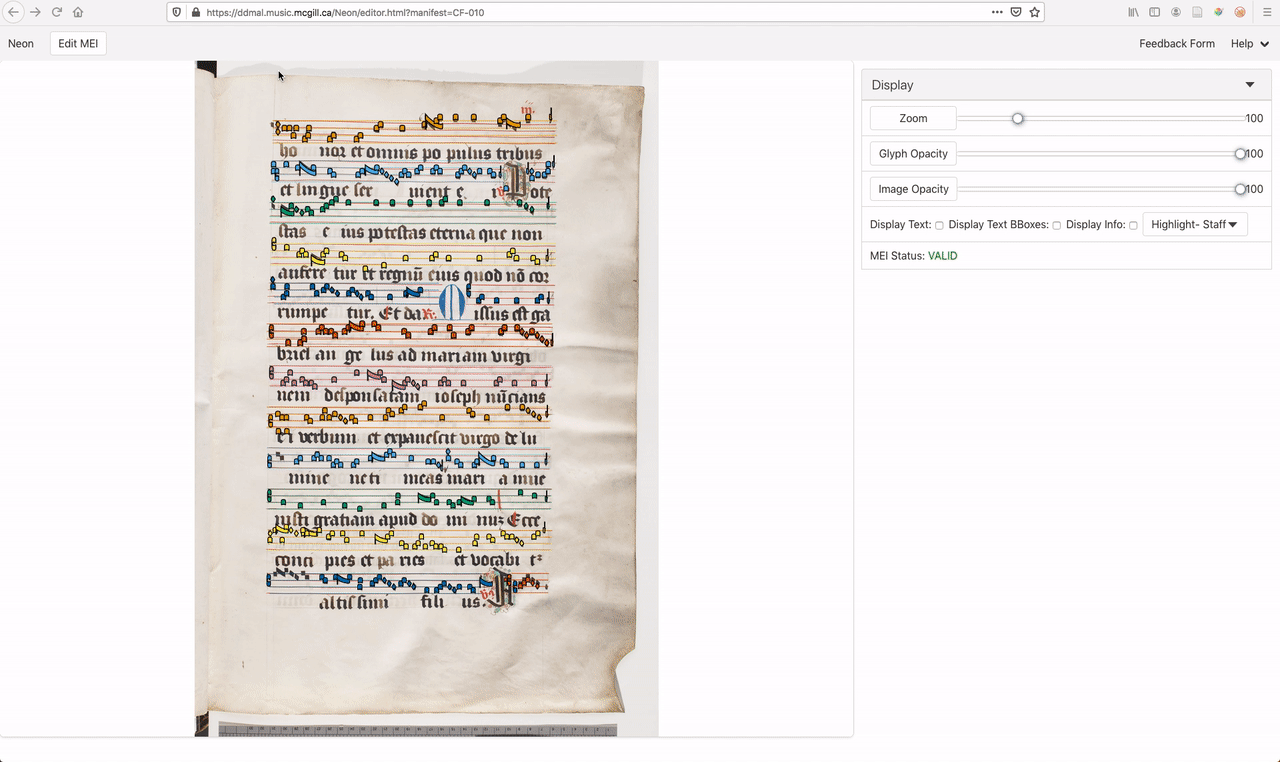 https://ddmal.music.mcgill.ca/Neon/editor.html?manifest=CF-010
Neon
Edit MEI
Feedback Form
Help
Display
Zoom
100
Glyph Opacity
100
Image Opacity
100
Display Text:
Display Text BBoxes:
Display Info:
Highlight- Staff
MEI Status: VALID
ho noꝛ et omnis po pulus tribus
et lingue ser uient e i
stas e ius potestas eterna que non
aufere tur et regnū eius quod nō cor
rumpe tur. Et da issus est ga
briel an ge lus ad mariam virgi
nem desponsatam ioseph nūcians
ei verbum et expauescit virgo de lu
mine ne ti meas mari a inue
nisti gratiam apud do mi Ecce
conci pies et pa ries et vocabi
altissimi fili us.